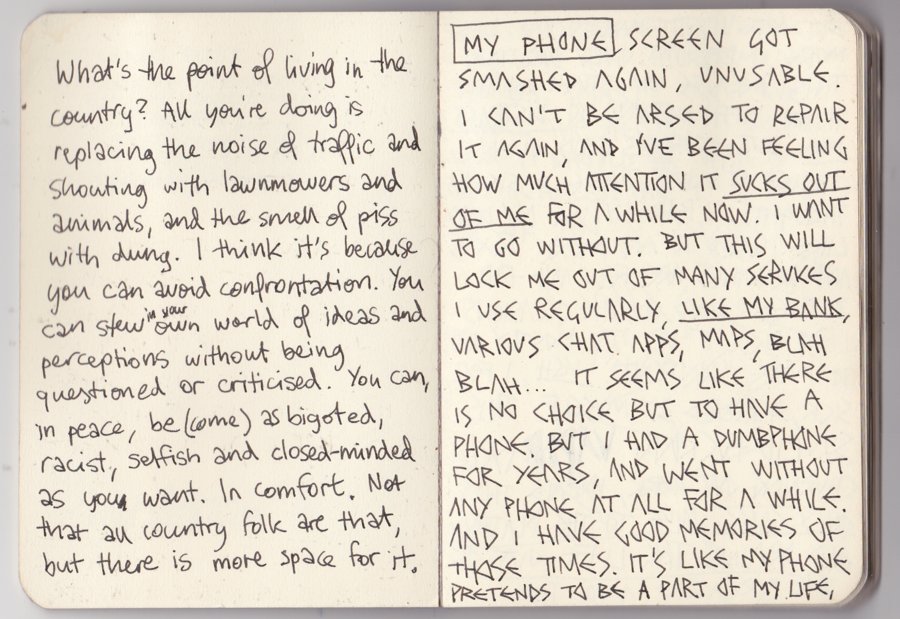 What's the point of living in the
country? All you're doing is
replacing the noise of traffic and
shouting with lawnmowers and
animals, and the smell of piss
with dung. I think it's because
you can avoid confrontation. You
can stew in your own world of ideas and
perceptions without being
questioned or criticised. You can,
in peace, be(come) as bigoted,
racist, selfish and closed-minded
as you want. In comfort. Not
that all country folk are that,
but there is more space for it.
MY PHONE SCREEN GOT
SMASHED AGAIN, UNUSABLE.
I CAN'T BE ARSED TO REPAIR
IT AGAIN, AND I'VE BEEN FEELING
HOW MUCH ATTENTION IT SUCKS OUT
OF ME FOR A WHILE NOW. I WANT
TO GO WITHOUT. BUT THIS WILL
LOCK ME OUT OF MANY SERVICES
I USE REGULARLY, LIKE MY BANK,
VARIOUS CHAT APPS, MAPS, BLAH
BLAH... IT SEEMS LIKE THERE
IS NO CHOICE BUT TO HAVE A
PHONE. BUT I HAD A DUMBPHONE
FOR YEARS, AND WENT WITHOUT
ANY PHONE AT ALL FOR A WHILE.
AND I HAVE GOOD MEMORIES OF
THOSE TIMES. IT'S LIKE MY PHONE
PRETENDS TO BE A PART OF MY LIFE,